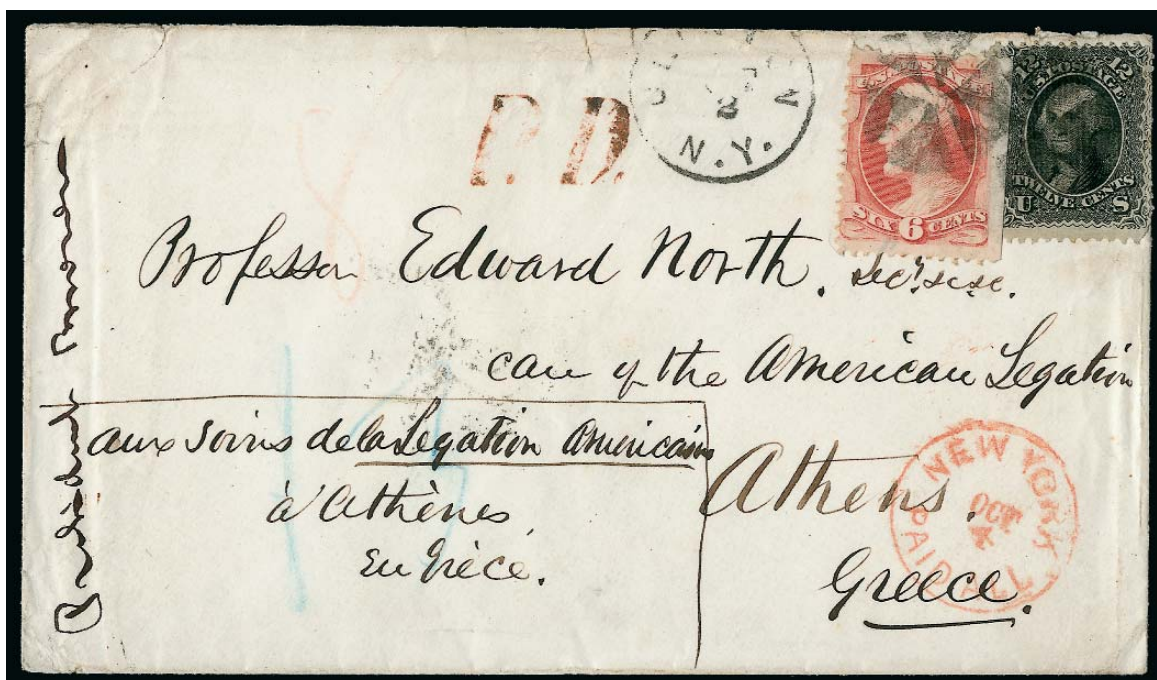 P. D.
N.Y.
U.S. POSTAGE
SIX 6 CENTS
12 12
U.S. POSTAGE
TWELVE CENTS
U S
Professor Edward North.
care of the American Legation
Athens.
Greece.
aux soins de la Legation Americaine
à Athènes
en Grèce.
NEW YORK
OCT
PAID ALL